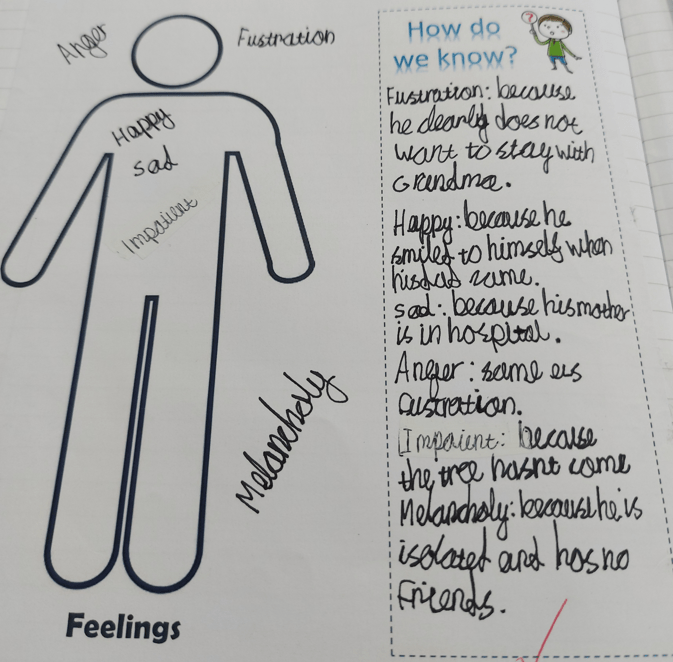 Anger
Fustration
Happy
sad
Impatient
Melancholy
Feelings
How do
we know?
?
Fustration: because
he clearly does not
want to stay with
Grandma.
Happy: because he
smiled to himself when
his dad came.
sad: because his mother
is in hospital.
Anger: same as
custration.
Impaient: because
the tree hasnt come
Melancholy: because he is
isolated and has no
Friends.